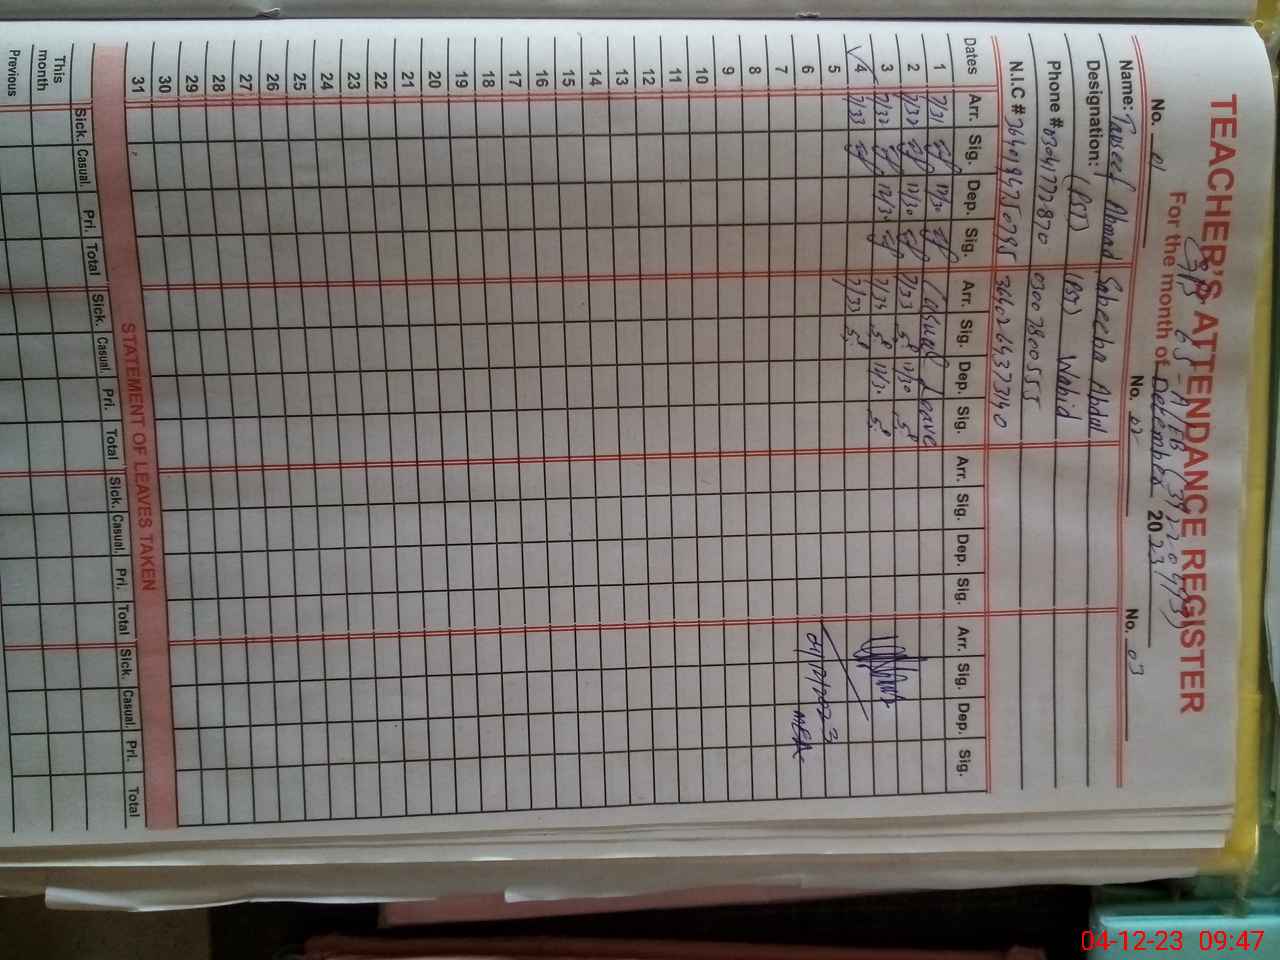 TEACHER'S ATTENDANCE REGISTER
For the month of December 2023
No. 01 No. 02 No. 03
Name: Tauseef Ahmad Sabeeha Abdul
Designation: (PST) (PST) Wahid
Phone # 03041772870 03007800555
N.I.C # 3640194750795 3640264373140
Dates Arr. Sig. Dep. Sig. Arr. Sig. Dep. Sig. Arr. Sig. Dep. Sig. Arr. Sig. Dep. Sig.
1 7/31 12/30 Casual Leave
2 7/32 12/30 7/33 12/30
3 7/32 12/30 7/34 12/30
4 7/33 7/33
5
6 04/12/2023 MEA
7
8
9
10
11
12
13
14
15
16
17
18
19
20
21
22
23
24
25
26
27
28
29
30
31
STATEMENT OF LEAVES TAKEN
Sick. Casual. Pri. Total Sick. Casual. Pri. Total Sick. Casual. Pri. Total Sick. Casual. Pri. Total
This month
Previous
04-12-23 09:47